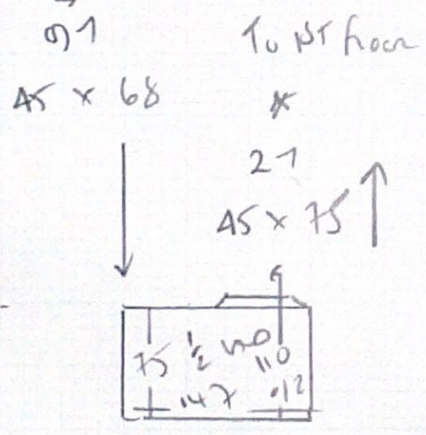 91
45 x 68
To 1st floor
*
21
45 x 75
75 1/2
110
147